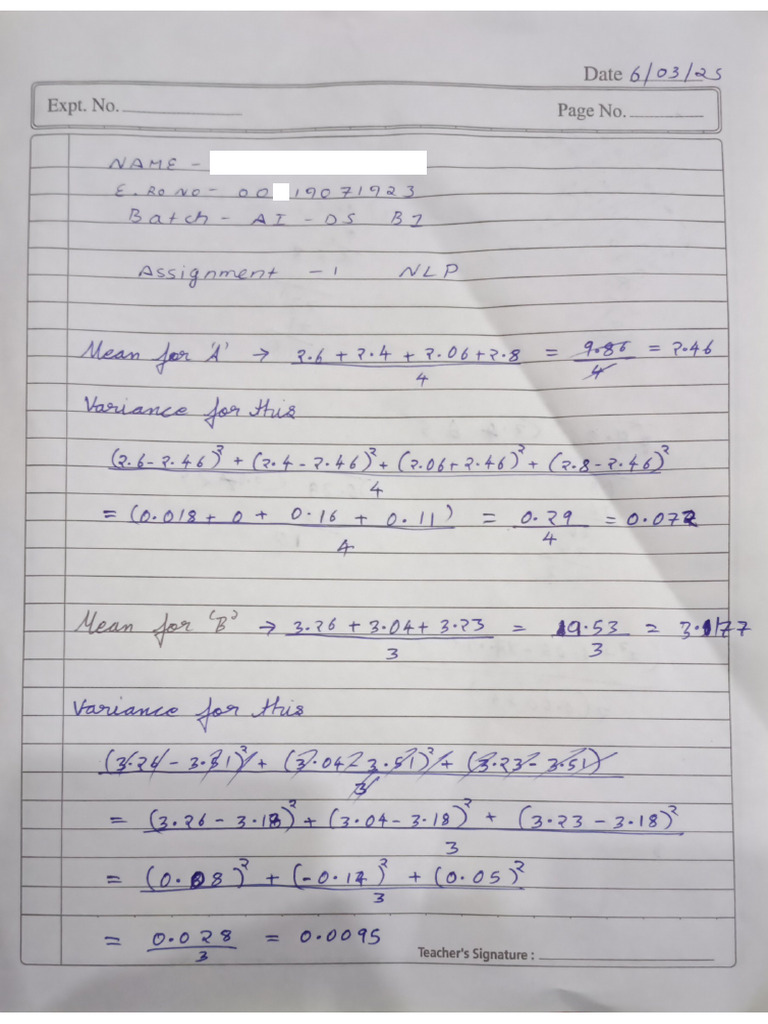 Date 6/03/25
Expt. No.
Page No.
NAME -
E. Ro No - 00 19071923
Batch - AI - DS B1
Assignment - 1 NLP
Mean for 'A' → 2.6 + 2.4 + 2.06 + 2.8 / 4 = 9.86 / 4 = 2.46
Variance for this
(2.6 - 2.46)² + (2.4 - 2.46)² + (2.06 + 2.46)² + (2.8 - 2.46)² / 4
= (0.018 + 0 + 0.16 + 0.11) / 4 = 0.29 / 4 = 0.072
Mean for 'B' → 3.26 + 3.04 + 3.23 / 3 = 9.53 / 3 = 3.177
Variance for this
= (3.26 - 3.18)² + (3.04 - 3.18)² + (3.23 - 3.18)² / 3
= (0.08)² + (-0.14)² + (0.05)² / 3
= 0.028 / 3 = 0.0095
Teacher's Signature :